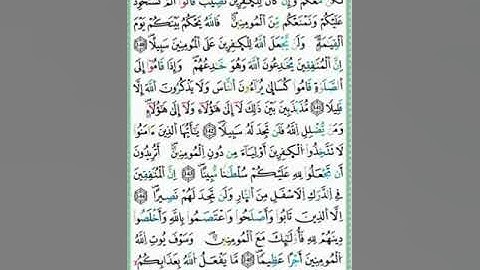 نَكُن مَّعَكُمْ وَإِن كَانَ لِلْكَٰفِرِينَ نَصِيبٌ قَالُوٓا۟ أَلَمْ نَسْتَحْوِذْ
عَلَيْكُمْ وَنَمْنَعْكُم مِّنَ ٱلْمُؤْمِنِينَ ۚ فَٱللَّهُ يَحْكُمُ بَيْنَكُمْ يَوْمَ
ٱلْقِيَٰمَةِ ۗ وَلَن يَجْعَلَ ٱللَّهُ لِلْكَٰفِرِينَ عَلَى ٱلْمُؤْمِنِينَ سَبِيلًا ﴿١٤١﴾
إِنَّ ٱلْمُنَٰفِقِينَ يُخَٰدِعُونَ ٱللَّهَ وَهُوَ خَٰدِعُهُمْ وَإِذَا قَامُوٓا۟ إِلَى
ٱلصَّلَوٰةِ قَامُوا۟ كُسَالَىٰ يُرَآءُونَ ٱلنَّاسَ وَلَا يَذْكُرُونَ ٱللَّهَ إِلَّا
قَلِيلًا ﴿١٤٢﴾ مُّذَبْذَبِينَ بَيْنَ ذَٰلِكَ لَآ إِلَىٰ هَٰٓؤُلَآءِ وَلَآ إِلَىٰ هَٰٓؤُلَآءِ ۚ
وَمَن يُضْلِلِ ٱللَّهُ فَلَن تَجِدَ لَهُۥ سَبِيلًا ﴿١٤٣﴾ يَٰٓأَيُّهَا ٱلَّذِينَ ءَامَنُوا۟
لَا تَتَّخِذُوا۟ ٱلْكَٰفِرِينَ أَوْلِيَآءَ مِن دُونِ ٱلْمُؤْمِنِينَ ۚ أَتُرِيدُونَ
أَن تَجْعَلُوا۟ لِلَّهِ عَلَيْكُمْ سُلْطَٰنًا مُّبِينًا ﴿١٤٤﴾ إِنَّ ٱلْمُنَٰفِقِينَ
فِى ٱلدَّرْكِ ٱلْأَسْفَلِ مِنَ ٱلنَّارِ وَلَن تَجِدَ لَهُمْ نَصِيرًا ﴿١٤٥﴾
إِلَّا ٱلَّذِينَ تَابُوا۟ وَأَصْلَحُوا۟ وَٱعْتَصَمُوا۟ بِٱللَّهِ وَأَخْلَصُوا۟
دِينَهُمْ لِلَّهِ فَأُو۟لَٰٓئِكَ مَعَ ٱلْمُؤْمِنِينَ ۖ وَسَوْفَ يُؤْتِ ٱللَّهُ
ٱلْمُؤْمِنِينَ أَجْرًا عَظِيمًا ﴿١٤٦﴾ مَّا يَفْعَلُ ٱللَّهُ بِعَذَابِكُمْ